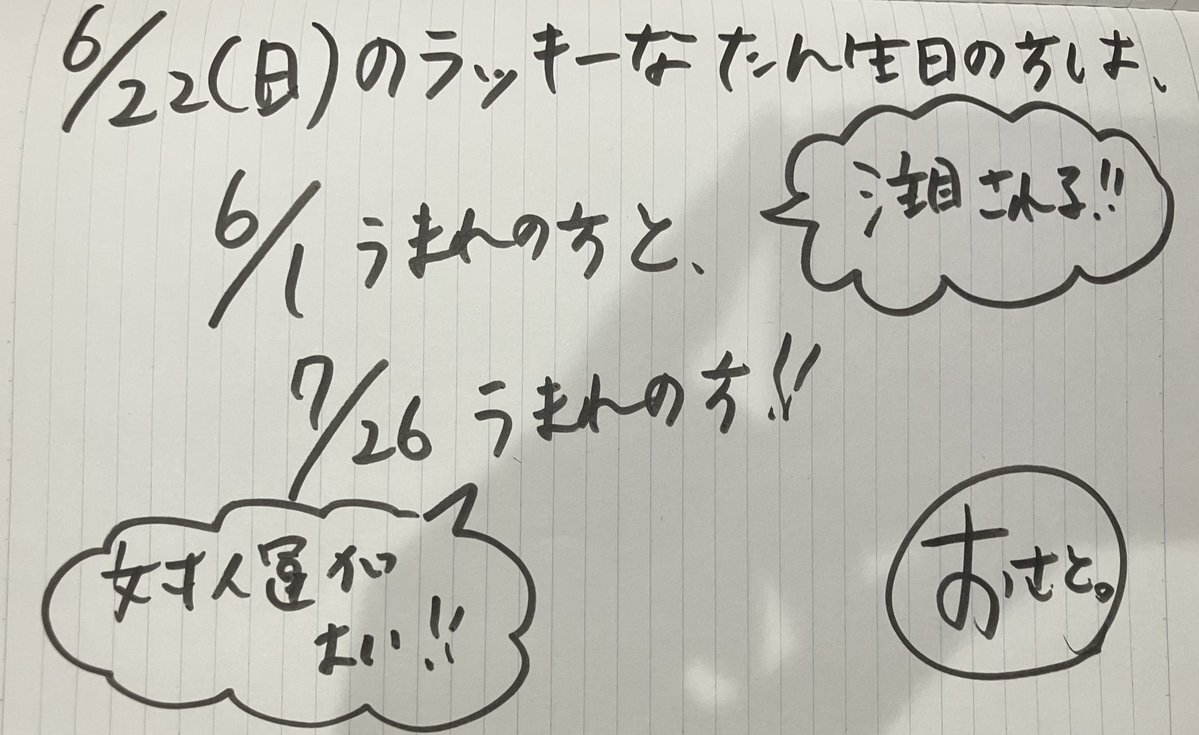 6/22(日)のラッキーなたん生日の方は、
注目される!!
6/1 うまれの方と、
7/26 うまれの方!!
対人運が
よい!!
おさと。